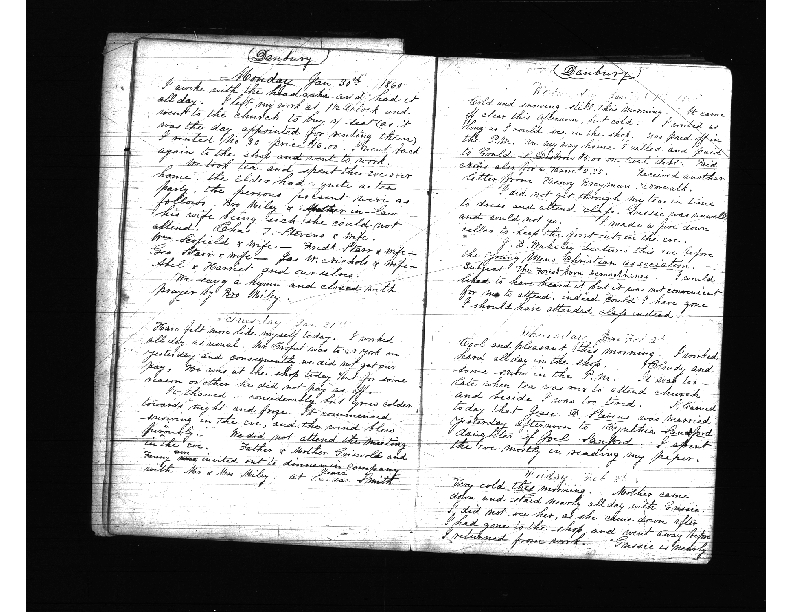 (Danbury)
Monday Jan 30th 1860
I awoke with the headache and had it
all day. I left my work at 1 o'clock and
went to the church to buy a seat (as it
was the day appointed for renting them)
I rented No 30 price $6.00. Went back
again to the shop and went to work.
We took tea and spent the eve over
home. The elders had quite a tea
party, the persons present were as
follows Bro Wiley & Mother-in-law
his wife being sick she could not
attend. Chas T. Stevens & wife.
Wm Scofield & wife — Fredk Starr & wife —
Geo Starr & wife — Jas W. Nichols & wife —
Abel & Harriet and ourselves.
We sang a hymn and closed with
prayer by Bro Wiley.
Tuesday Jan 31st
Have felt more like myself today. I worked
all day as usual. Mr was to
yesterday and consequently we did not get our
pay. He was at the shop today but for some
reason or other he did not pay us off.
It thawed considerably but grew colder
towards night and froze. It commenced
snowing in the eve, and the wind blew
furiously. We did not attend the meeting
in the eve. Father & Mother Griswold and
Fanny invited out to dinner in company
with Mr & Mrs Wiley, at Smith
(Danbury)
Cold and snowing this morning. It came
off clear this afternoon, but cold. I worked as
long as I could see in the shop. Was paid off in
the P.M. On my way home I called and paid
to $6.00 on debt. Paid
also for 2.25. Received another
letter from Henry
I did not get through my tea in time
to dress and attend class. Gussie was unwell
and could not go. I made a fire down
cellar to keep the frost out in the eve.
J. B. Wakeley lectures this eve before
the Young Mens Christian association.
Subject The I would
liked to have heard it, but it was not convenient
for me to attend, indeed could I have gone
I should have attended Class instead.
Thursday Feb 2d
Cool and pleasant this morning. I worked
hard all day in the shop. Cloudy and
some snow in the P.M. It was too
late when tea was over to attend church
and beside I was too tired. I learned
today that was married
yesterday afternoon to Sanford
daughter of Joel Sanford. I spent
the eve mostly in reading my paper.
Feb 3d
Very cold this morning. Mother came
down and staid nearly all day with Gussie.
I did not see her, as she came down after
I had gone to the shop, and went away before
I returned from work. Gussie is nearly